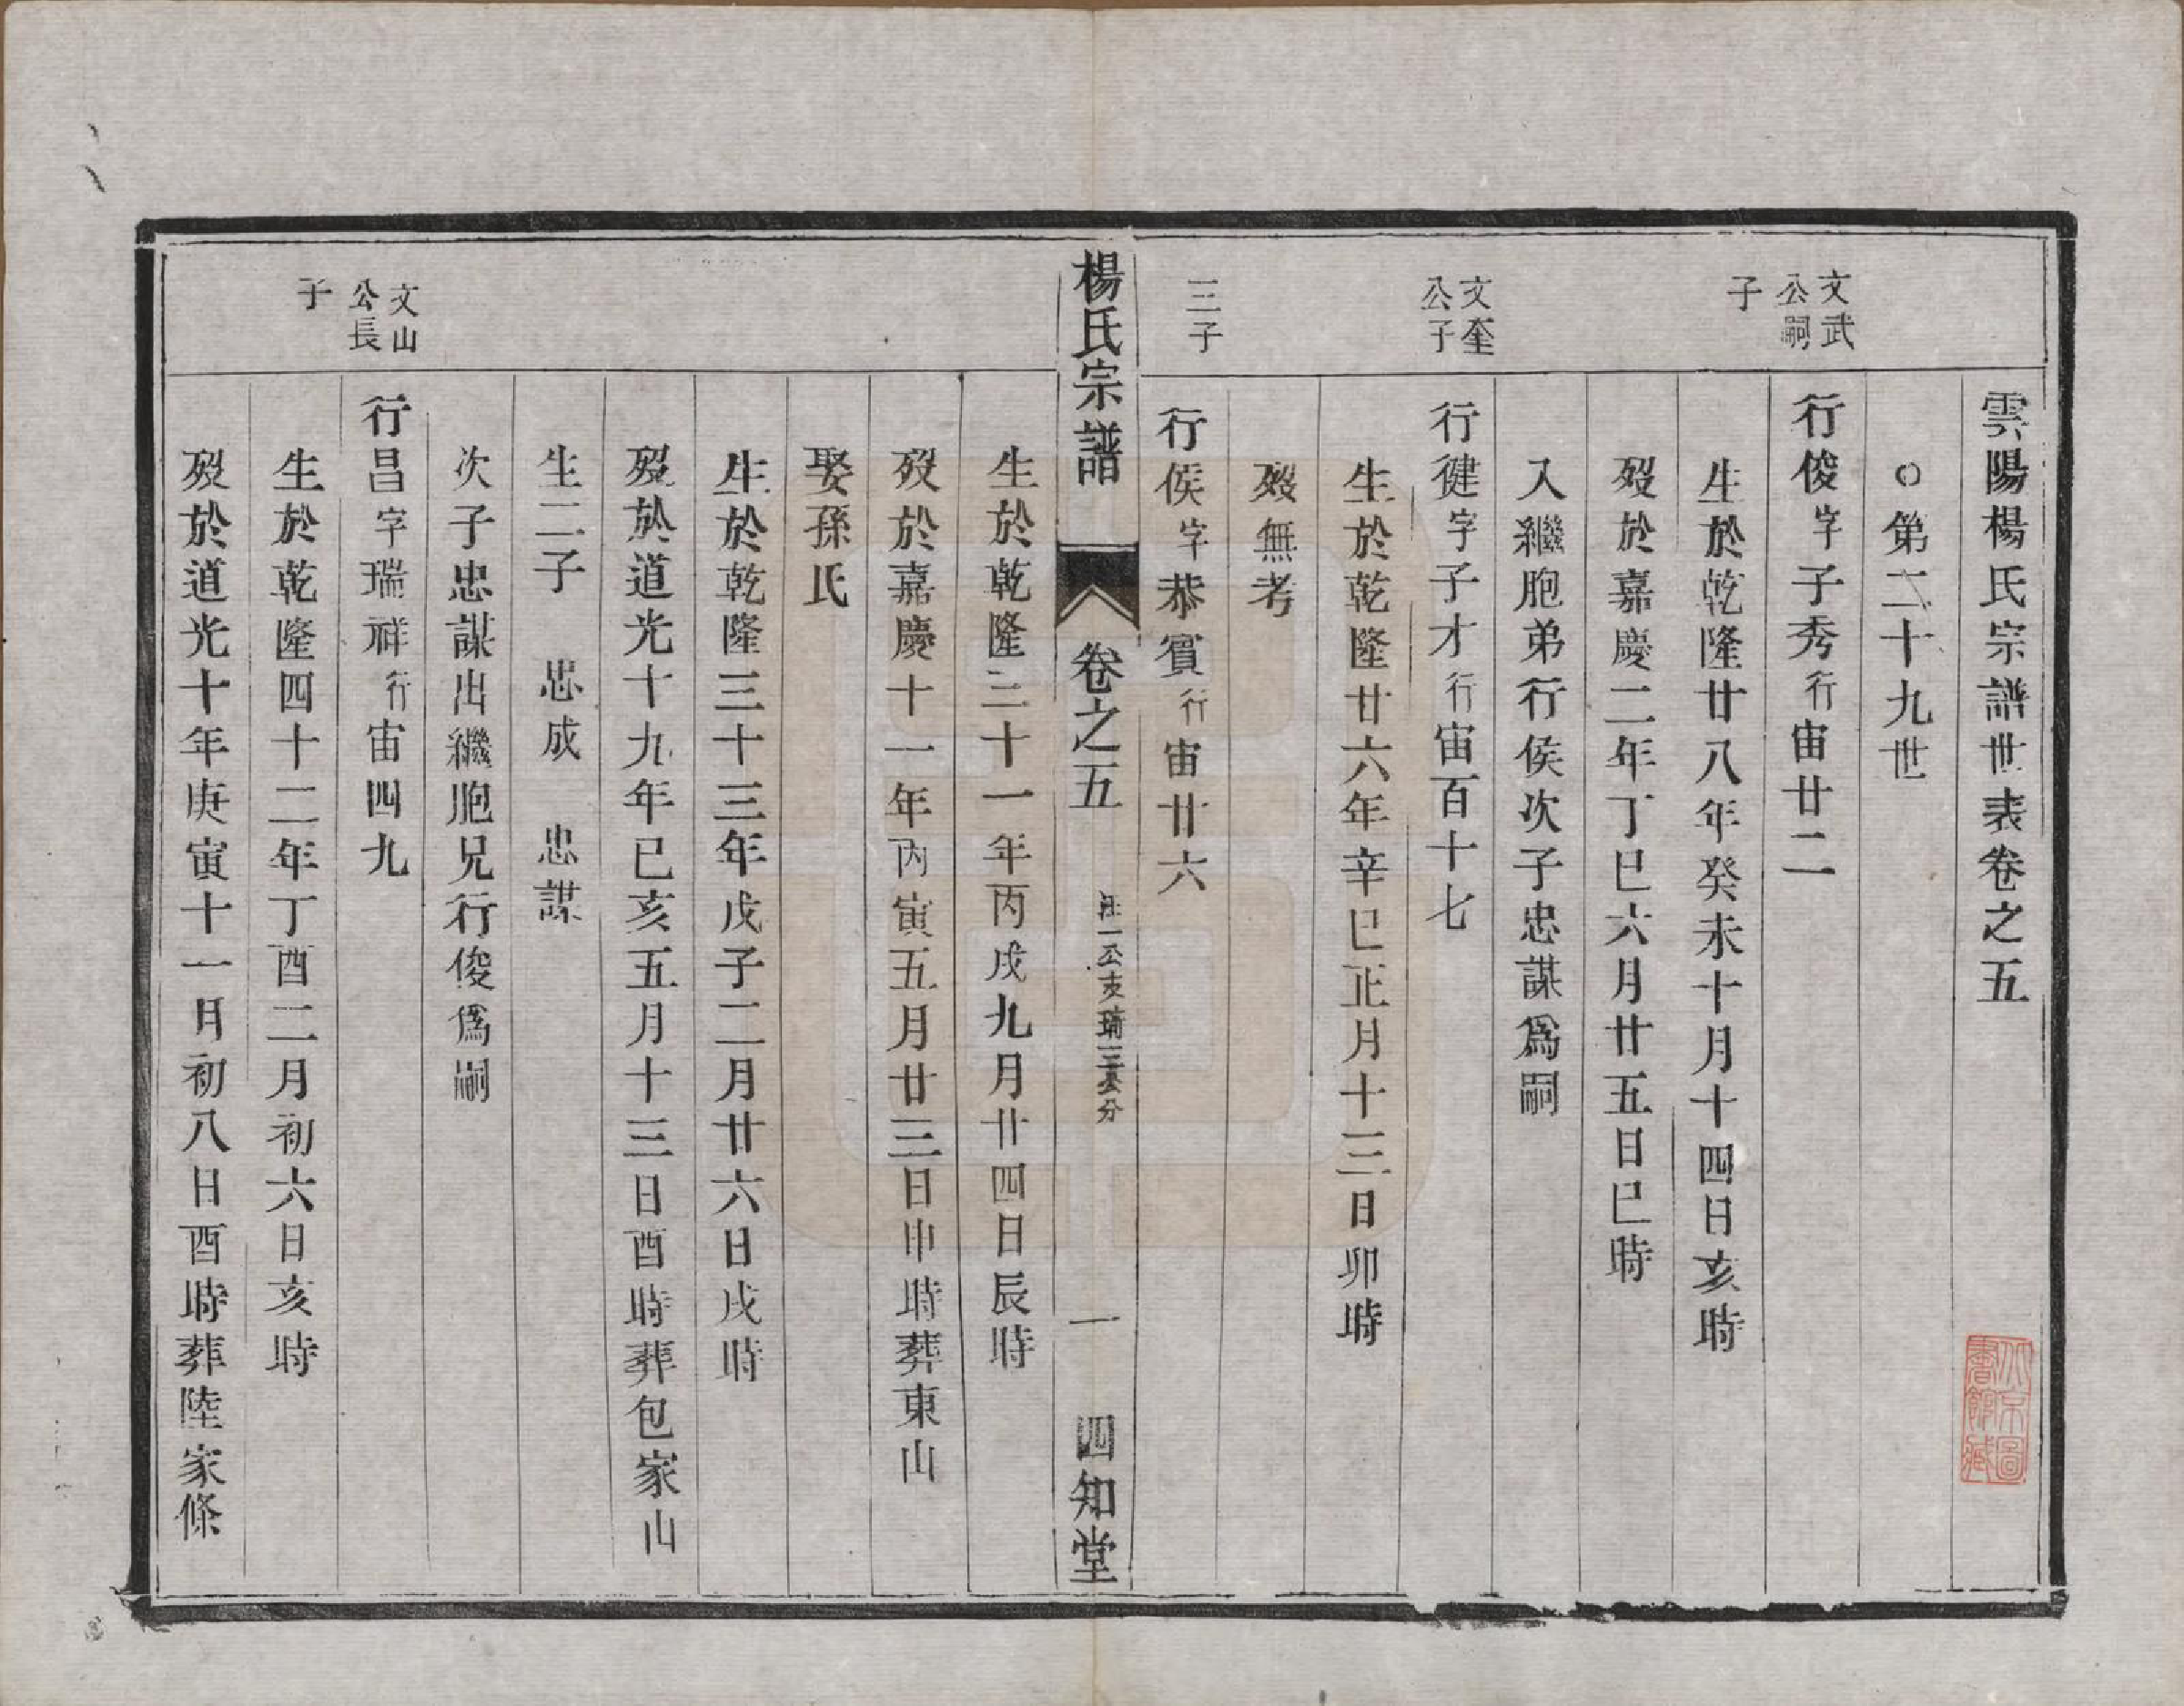 雲陽楊氏宗譜世表卷之五
○第二十九世
文武公嗣子
行俊字子秀行宙廿二
生於乾隆廿八年癸未十月十四日亥時
歿於嘉慶二年丁巳六月廿五日巳時
入繼胞弟行侯次子忠謀爲嗣
文奎公子
行健字子才行宙百十七
生於乾隆廿六年辛巳正月十三日卯時
歿無考
三子
行侯字恭賓行宙廿六
楊氏宗譜 卷之五 公支 三 分 一 四知堂
生於乾隆三十一年丙戌九月廿四日辰時
歿於嘉慶十一年丙寅五月廿三日申時葬東山
娶孫氏
生於乾隆三十三年戊子二月廿六日戌時
歿於道光十九年已亥五月十三日酉時葬包家山
生二子 忠成 忠謀
次子忠謀出繼胞兄行俊爲嗣
文山公長子
行昌字瑞祥行宙四九
生於乾隆四十二年丁酉二月初六日亥時
歿於道光十年庚寅十一月初八日酉時葬陸家條
北京圖書館藏